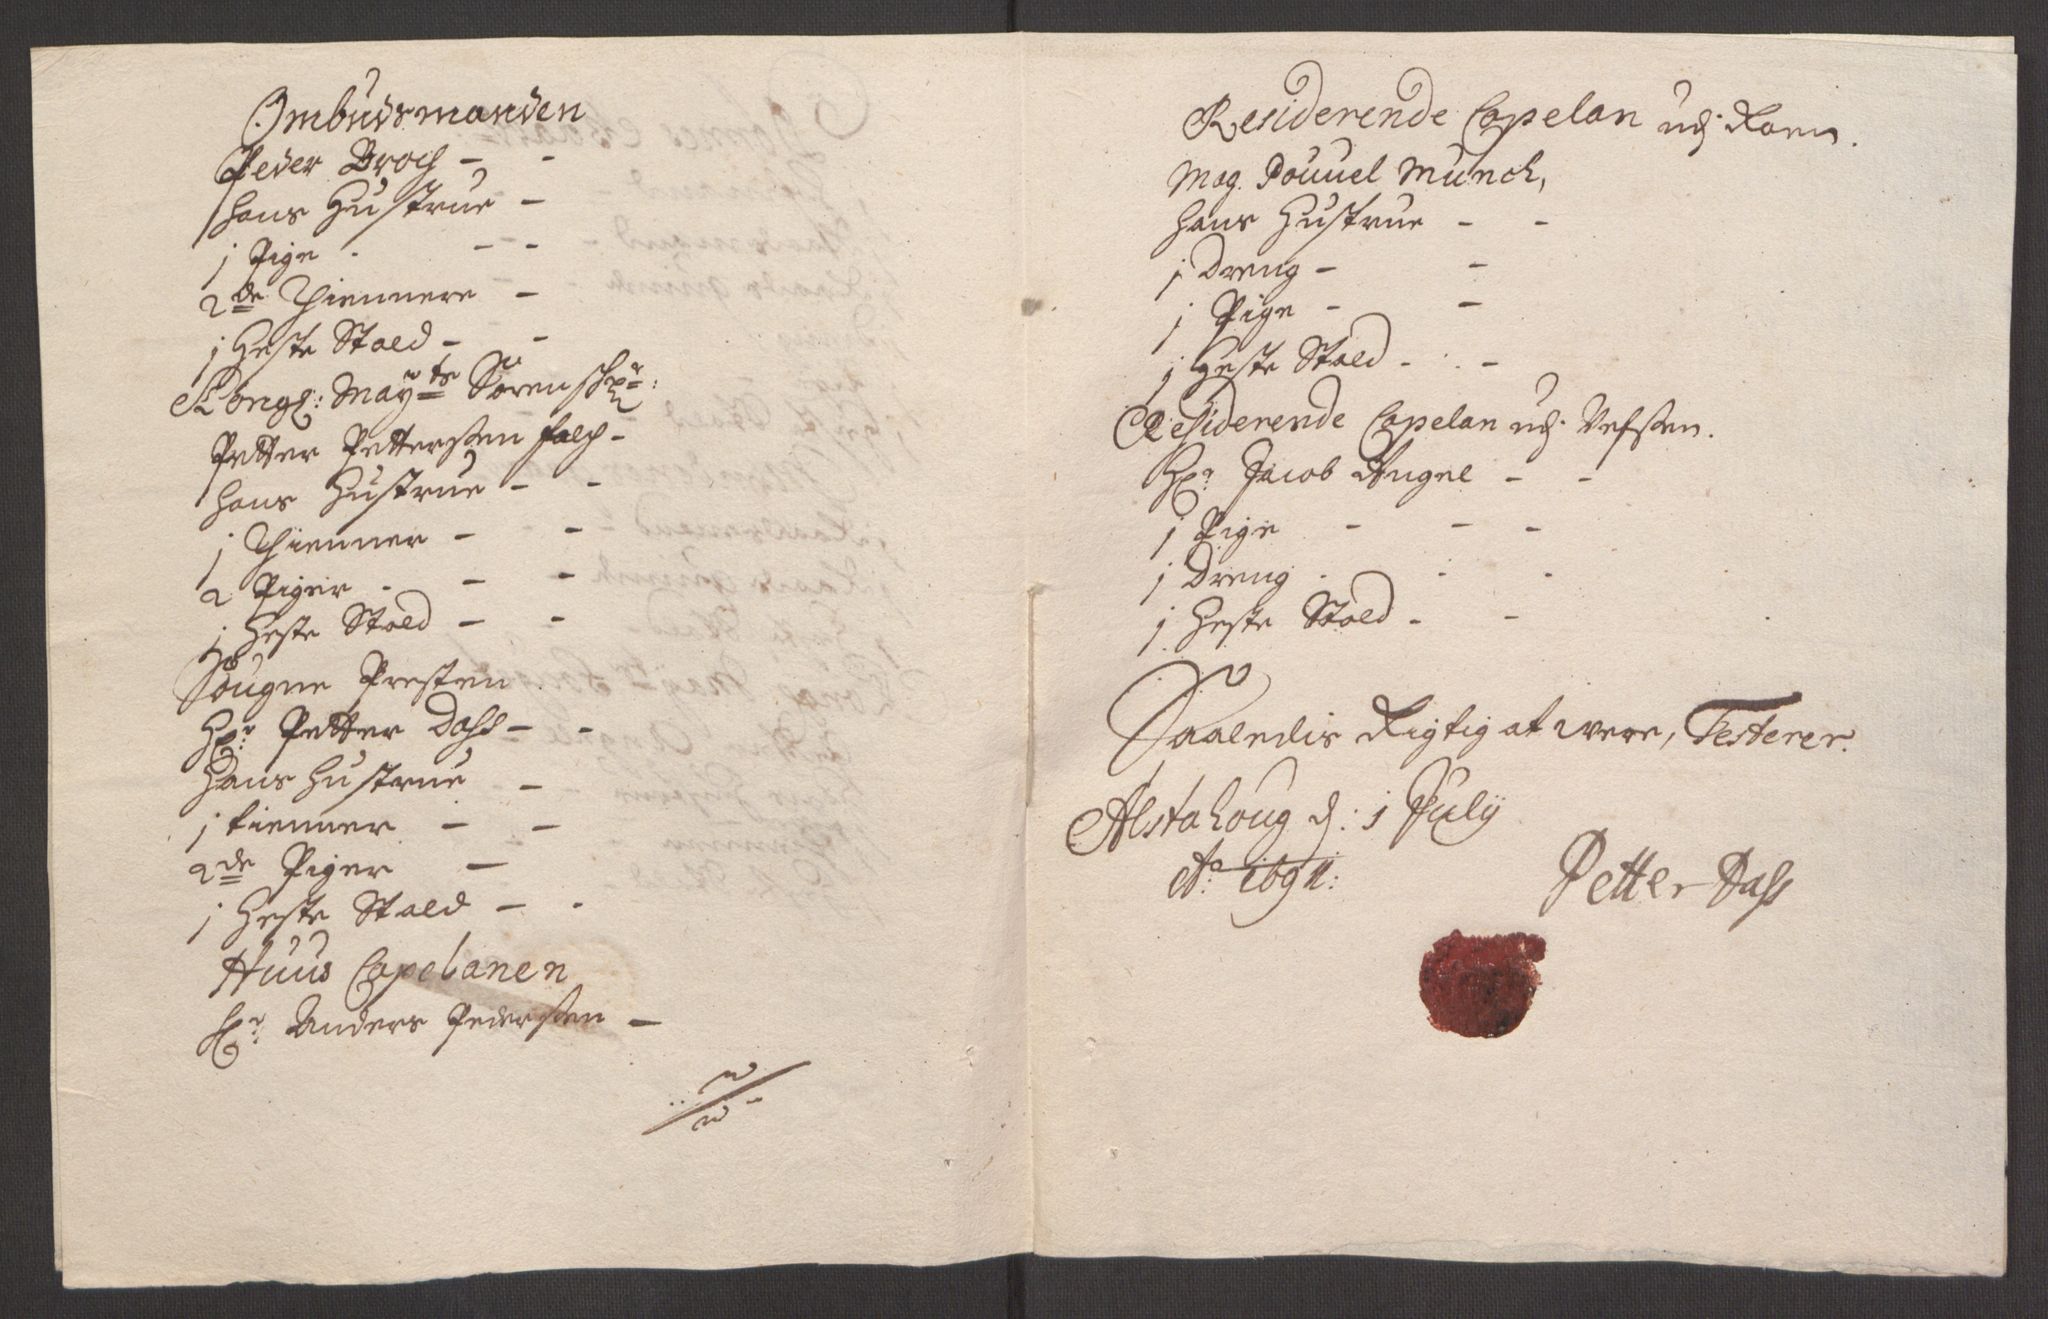 Ombudsmanden
Peder Broch - -
hans Hustrue -
j Pige - - -
2de Thiennere -
j Heste Stald - -
Kongl: Mayts Sorenschr:
Petter Petterssen falch -
hans Hustrue - -
j Thienner - -
2 Piger - - -
j Heste Stald - -
Sougne Presten
Hr: Petter Dass - -
Hans hustrue -
j tienner - -
2de Piger -
j Heste Stald - -
Huus Capelanen
Hr: Anders Pederssen -
Residerende Capelan udj Ranen.
Mag. Pouuel Munch,
hans Hustrue - -
j Dreng - -
j Pige - -
j Heste Stald - -
Residerende Capelan udj Vefssen.
Hr: Jacob Angel - -
j Pige - - -
j Dreng - - -
j Heste Stald - -
Saaledis Rigtig at were, Testerer.
Alstahoug d: 1 July
Ao: 1691:
Petter Dass